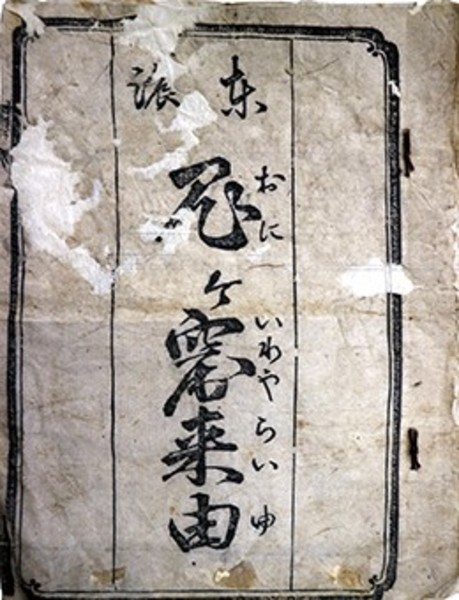 東
鬼ヶ窟来由
おに いわや らいゆ